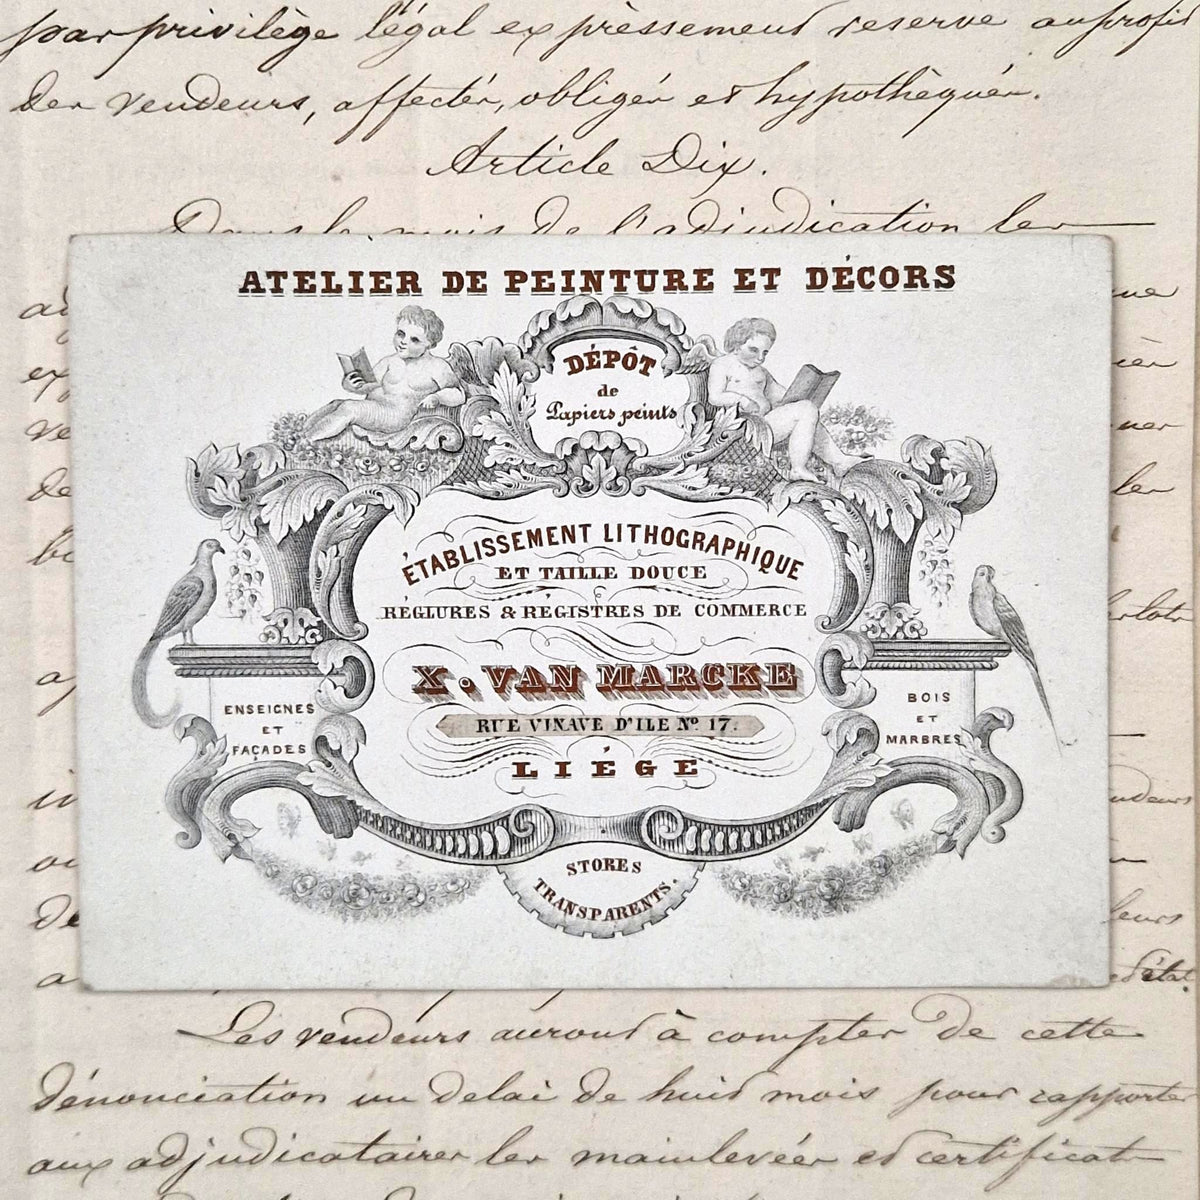 par privilège légal expressement reservé au profit
des vendeurs, affectés, obligés et hypothèqués.
Article Dix.
Dans le mois de l'adjudication les
ATELIER DE PEINTURE ET DÉCORS
DÉPÔT
de
Papiers peints
ÉTABLISSEMENT LITHOGRAPHIQUE
ET TAILLE DOUCE
RÉGLURES & RÉGISTRES DE COMMERCE
X. VAN MARCKE
RUE VINAVE D'ILE No 17.
LIÉGE
ENSEIGNES
ET
FAÇADES
BOIS
ET
MARBRES
STORES
TRANSPARENTS.
Les vendeurs auront à compter de cette
dénonciation un delai de huit mois pour rapporter
aux adjudicataires les mainlevées et certificats